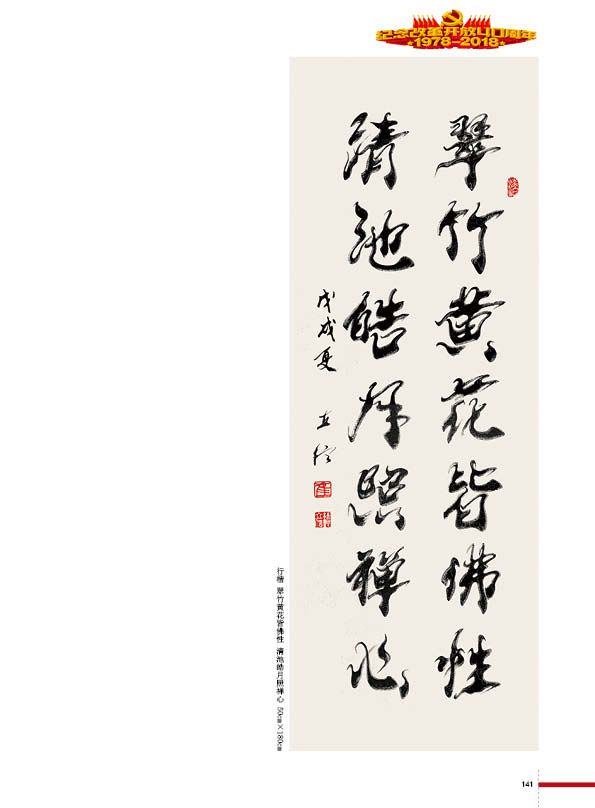 纪念改革开放40周年
1978-2018
翠竹黄花皆佛性
清池皓月照禪心
戊戌夏
行楷 翠竹黄花皆佛性 清池皓月照禅心 50cm×180cm
141